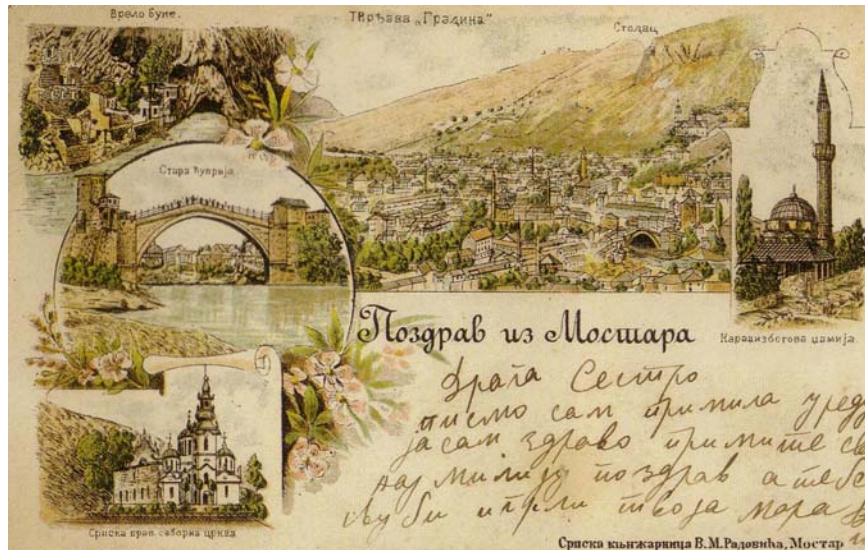 Врело Буне.
Тврђава „Градина“
Столац
Стара Ћуприја.
Поздрав из Мостара
Караџизбегова џамија.
Српска прав. саборна црква
Драга Сестро
писмо сам примила уред
ја сам здраво примите
нај милији поздрав а тебе
љуби и грли твоја Мара
Српска књижарница В. М. Радовића, Мостар